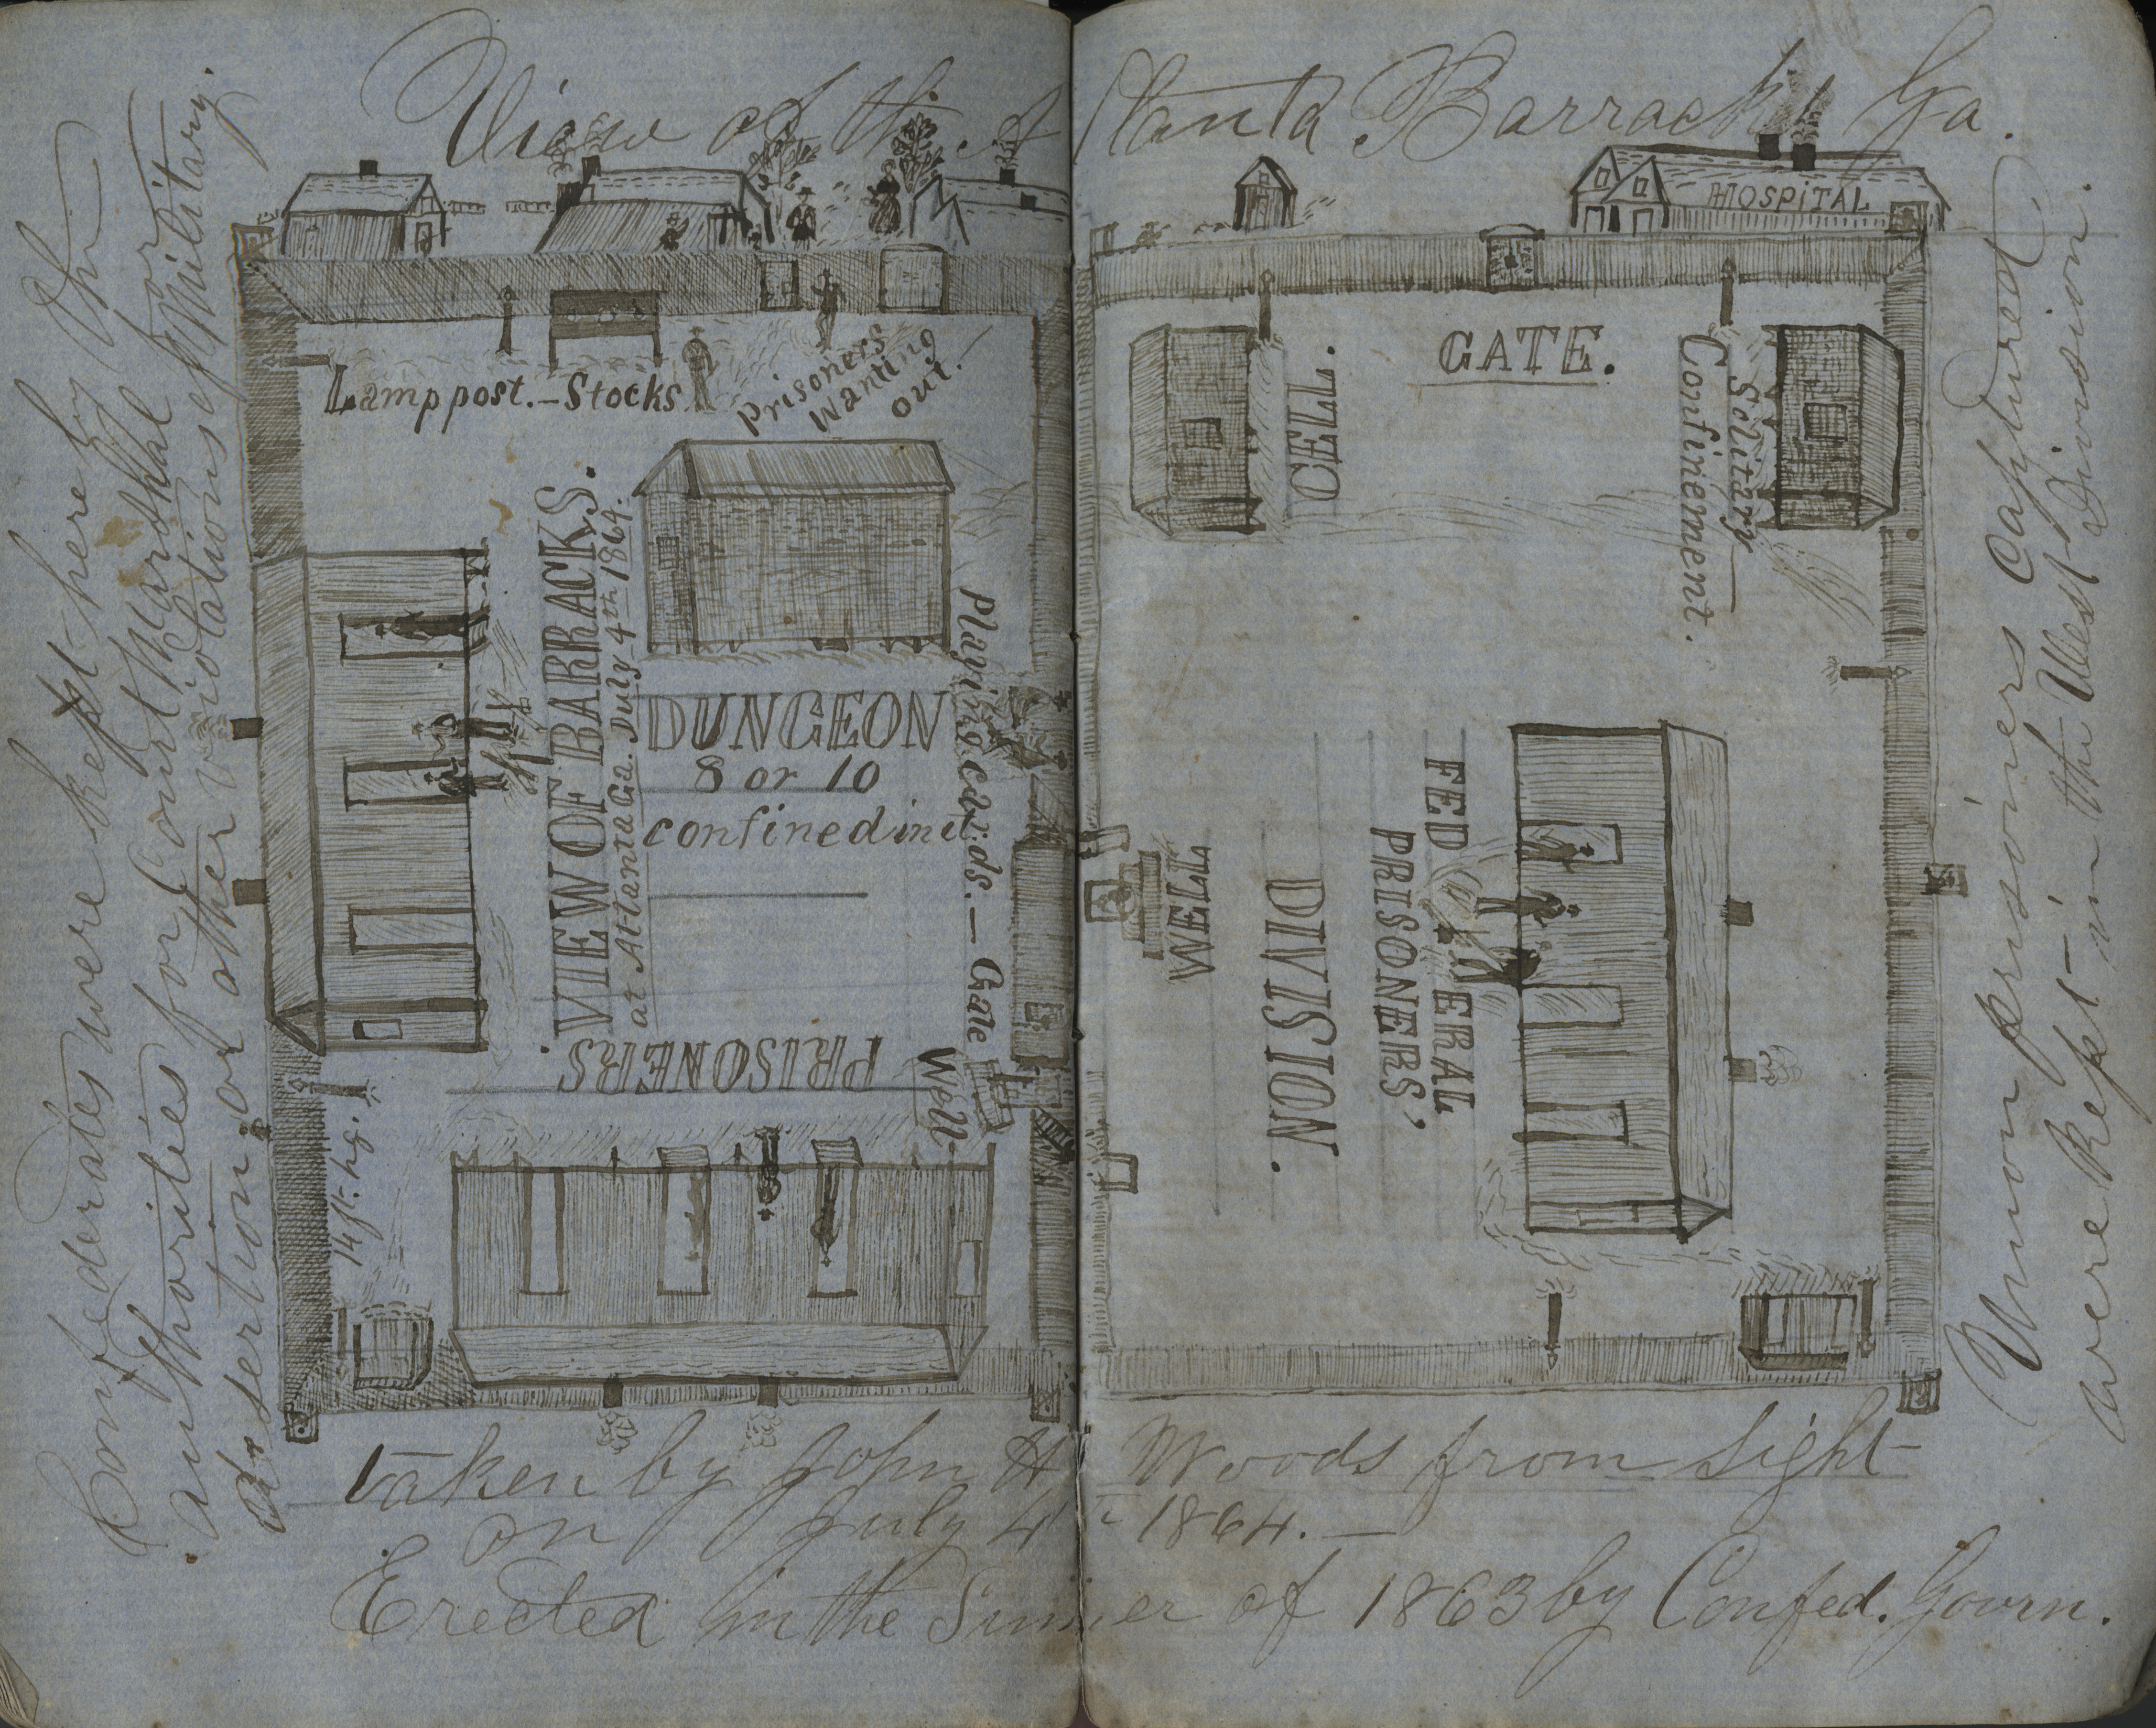 View of the Atlanta Barracks Ga.
HOSPITAL
Lamp post. - Stocks
Prisoners
Wanting
out.
GATE.
CELL.
Solitary
Confinement.
VIEW OF BARRACKS.
at Atlanta Ga. July 4th 1864.
DUNGEON
8 or 10
confined in it.
Playing cards. - Gate
Well
PRISONERS.
14 ft. hg.
WELL
DIVISION.
FEDERAL
PRISONERS'
Confederates were kept here by the
authorities for Court Marshal or
desertion or other violations of Military.
Union prisoners captured
were kept in the West Division.
taken by John H Woods from sight
on July 4th 1864. -
Erected in the Summer of 1863 by Confed. Govrn.